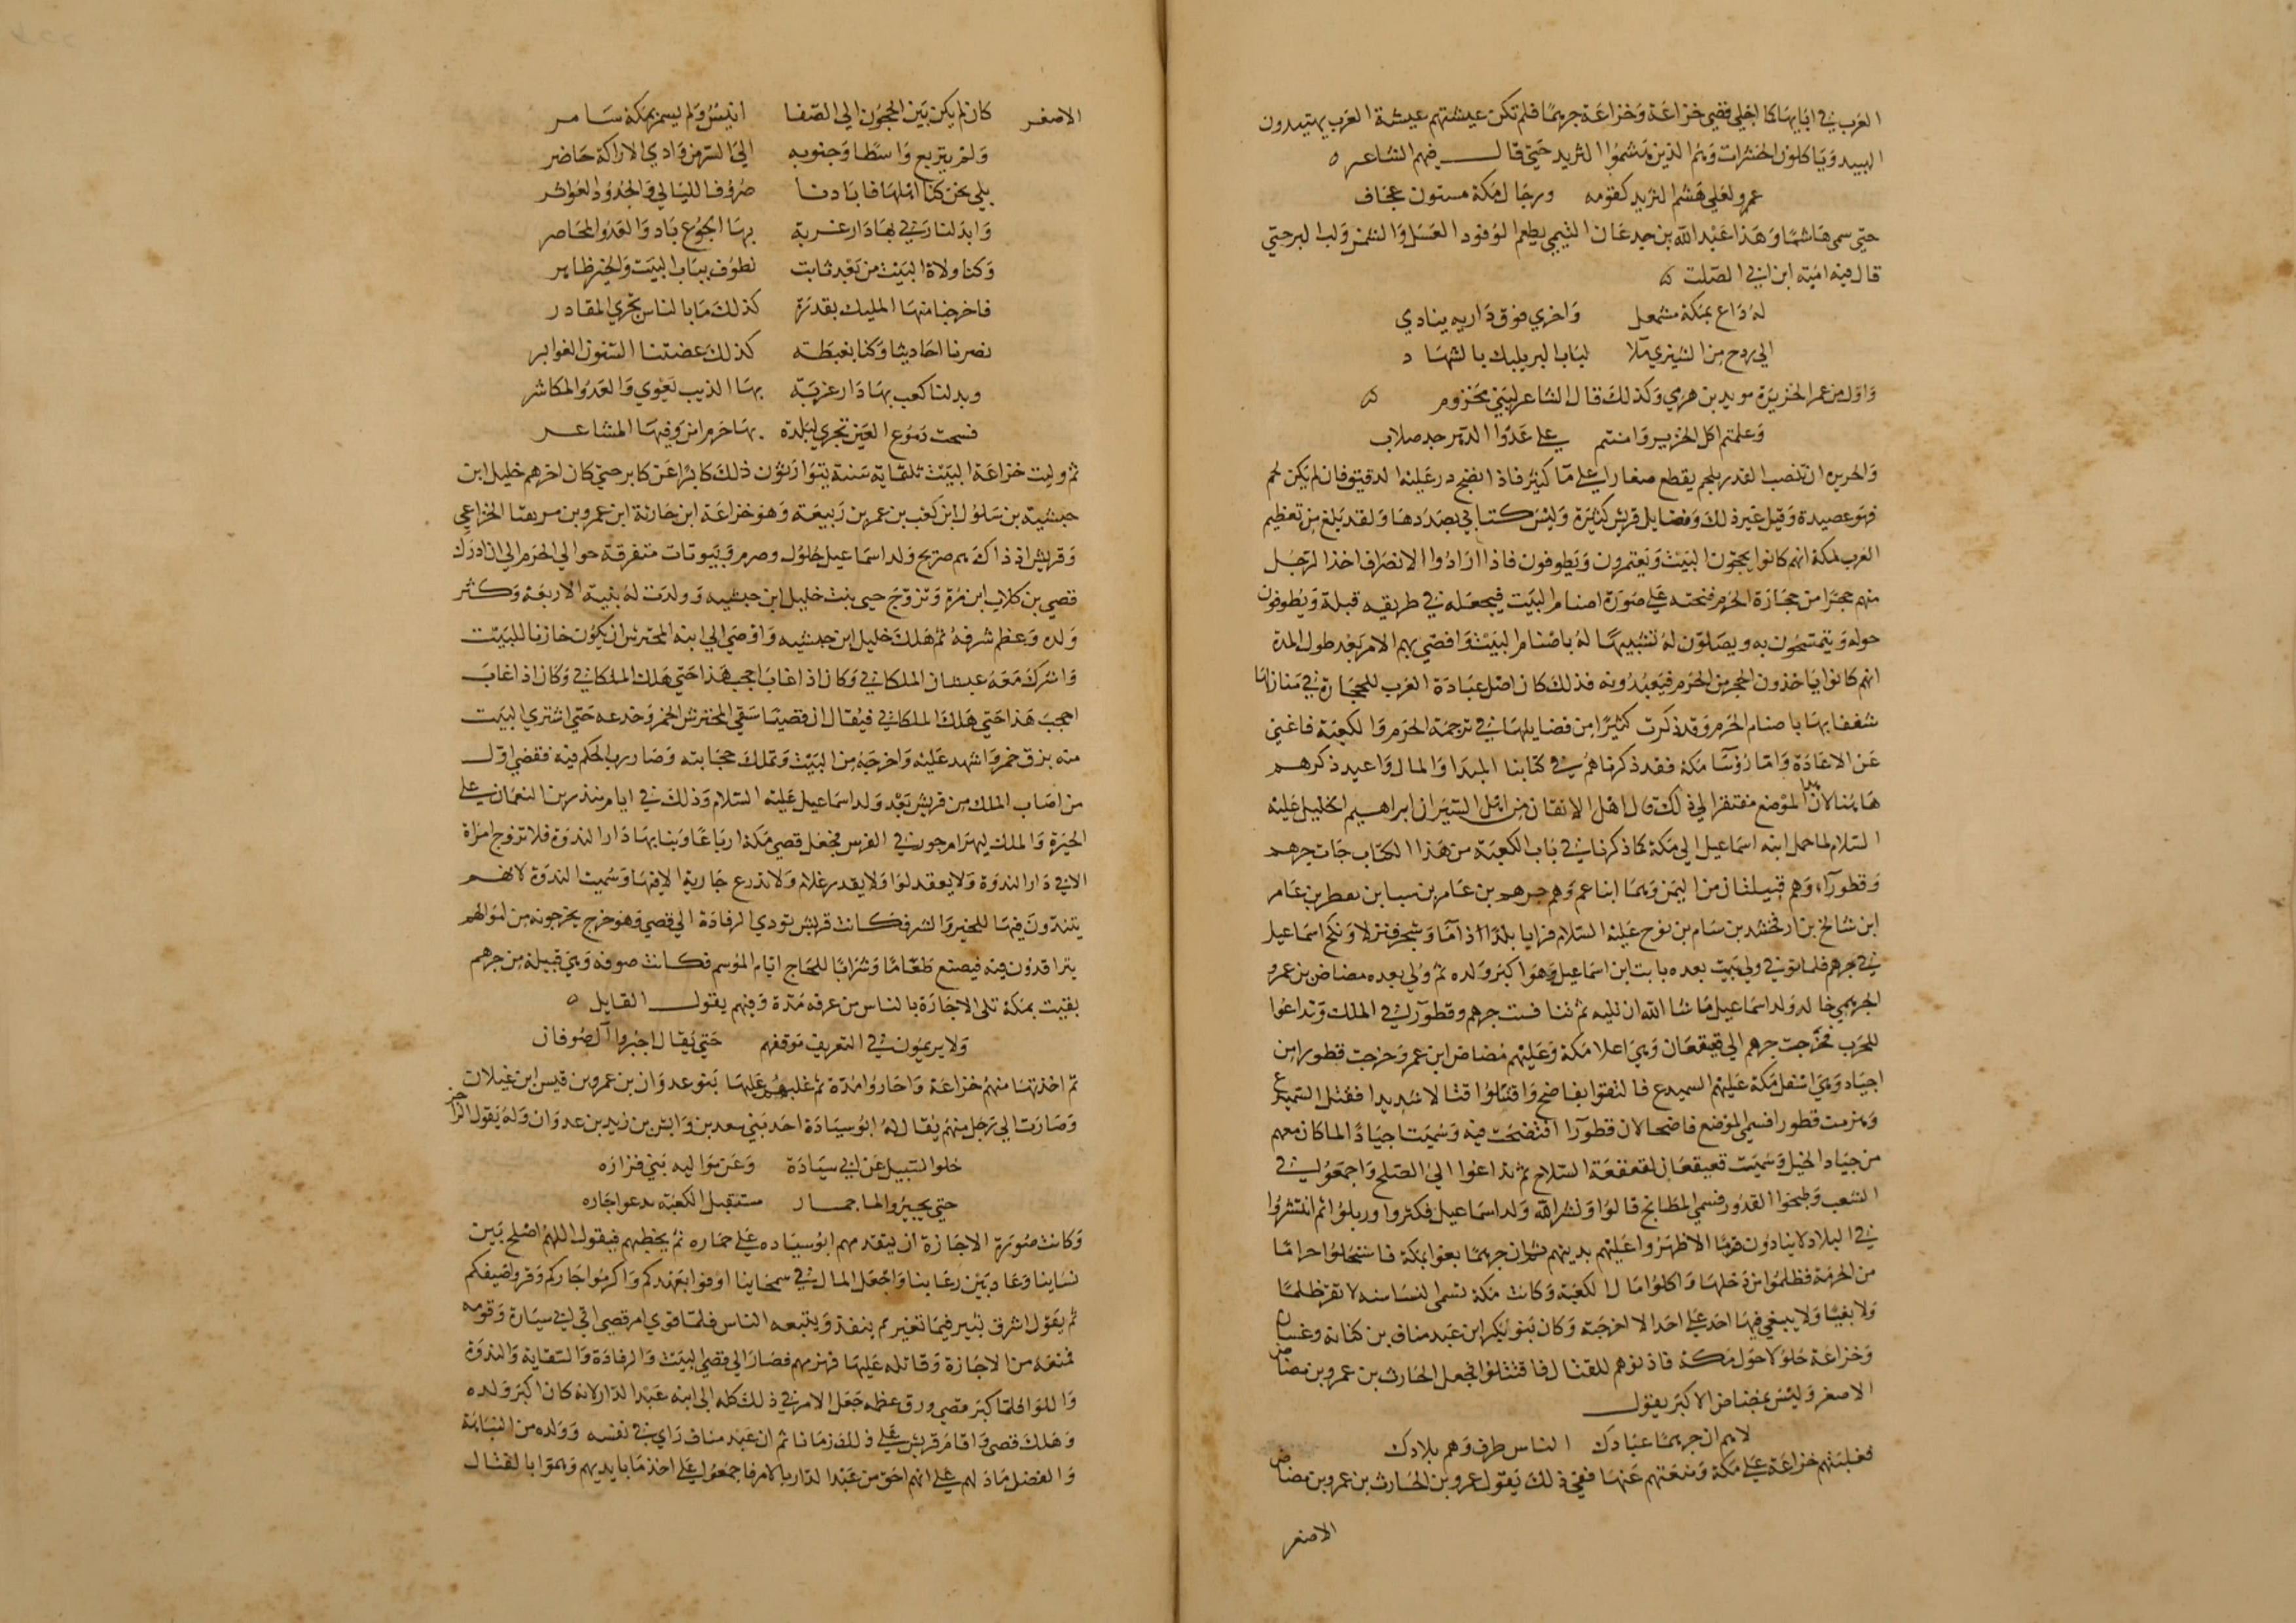 العرب في ابايها كما اجلي قصي خزاعة وخزاعة جرهما فلم تكن عيشتهم عيشة العرب يهتبدون
الهبيد وياكلون الحشرات وهم الذين هشموا الثريد حتي قال فيهم الشاعر
عمرو لعلي هشم الثريد لقومه ورجال مكة مسنتون عجاف
حتي سمي هاشما وهذا عبد الله بن جدعان التيمي يطعم الوفود العسل والسمن ولب البر حتي
قال فيه امية ابن ابي الصلت
له داع بمكة مشمعل واخري فوق داريه ينادي
الي ردح من الشيزي ملا لباب البر يلبك بالشهاد
واول من عمل الخزيرة سويد بن هرمي وكذلك قال الشاعر لبني مخزوم
وعلمتم اكل الخزير وانتم علي عدوا الدهر جد صلاب
والخزير ان تنصب القدر بلحم يقطع صغارا علي ما كثير فاذا نضج در عليه الدقيق فان لم يكن لحم
فهو عصيدة وقيل غير ذلك وفضايل قريش كثيرة وليس كتابي بصددها ولقد بلغ من تعظيم
العرب لمكة انهم كانوا يحجون البيت ويعتمرون ويطوفون فاذا ارادوا الانصراف اخذ الرجل
منهم حجرا من حجارة الحرم فنحته علي صورة اصنام البيت فيجعله في طريقه قبلة ويطوفون
حوله ويتمسحون به ويصلون له تشبيها له باصنام البيت وافضي بهم الامر بعد طول المدة
انهم كانوا ياخذون الحجر من الحرم فيعبدونه فذلك كان اصل عبادة العرب للحجارة في منازلها
شغفا بها باصنام الحرم وقد ذكرت كثيرا من فضايلها في ترجمة الحرم والكعبة فاغني
عن الاعادة واما رؤسا مكة فقد ذكرناهم في كتابنا المبدا والمال واعيد ذكرهم
هاهنا لان هذا الموضع مفتقر الي ذلك قال اهل الاتقان من اهل السير ان ابراهيم الخليل عليه
السلام لما حمل ابنه اسماعيل الي مكة كما ذكرنا في باب الكعبة من هذا الكتاب جات جرهم
وقطورا وهم قبيلتان من اليمن وهما ابنا عم وهم جرهم بن عامر بن سبا بن يقطن بن عامر
ابن شالخ بن ارفخشد بن سام بن نوح عليه السلام فرايا بلدا ذا ما وشجر فنزلا ونكح اسماعيل
في جرهم فلما توفي ولي البيت بعده نابت ابن اسماعيل وهو اكبر ولده ثم ولي بعده مضاض بن عمرو
الجرهمي خال ولد اسماعيل ما شا الله ان يليه ثم تنافست جرهم وقطورا في الملك وتداعوا
للحرب فخرجت جرهم الي قعيقعان وهي اعلا مكة وعليهم مضاض ابن عمرو وخرجت قطورا من
اجياد وهي اسفل مكة عليهم السميدع فالتقوا بفاضح واقتتلوا قتالا شديدا فقتل السميدع
وهزمت قطورا فسمي الموضع فاضحا لان قطورا افتضحت فيه وسميت اجياد لما كان معهم
من جياد الخيل وسميت قعيقعان لقعقعة السلاح ثم تداعوا الي الصلح واجتمعوا في
الشعب وطبخوا القدور فسمي المطابخ قالوا ونشر الله ولد اسماعيل فكثروا وربلوا ثم انتشروا
في البلاد لا ينادون قوما الا ظهروا عليهم بدينهم ثم ان جرهما بغوا بمكة فاستحلوا حراما
من الحرمة فظلموا من دخلها واكلوا مال الكعبة وكانت مكة تسمي النساسة لا تقر ظلما
ولا بغيا ولا يبغي فيها احد علي احد الا اخرجته وكان بنو بكر ابن عبد مناف بن كنانة وغسان
وخزاعة حلولا حول مكة فاذنوهم للقتال فاقتتلوا فجعل الحارث بن عمرو بن مضاض
الاصغر وليس مضاض الاكبر يقول
لا هم ان جرهما عبادك الناس طرف وهم بلادك
فغلبتهم خزاعة علي مكة ومنعتهم عنها ففي ذلك يقول عمرو بن الحارث بن عمرو بن مضاض
الاصغر
الاصغر كان لم يكن بين الحجون الي الصفا انيس ولم يسمر بمكة سامر
ولم يتربع واسطا وجنوبه الي السر من وادي الاراكة حاضر
بلي نحن كنا اهلها فابادنا صروف الليالي والجدود العواثر
وابدلنا ربي بها دار غربة بها الجوع باد والعدو المحاصر
وكنا ولاة البيت من بعد نابت نطوف بباب البيت والخير ظاهر
فاخرجنا منها المليك بقدرة كذلك ما بالناس تجري المقادر
فصرنا احاديثا وكنا بغبطة كذلك عضتنا السنون الغوابر
وبدلنا كعب بها دار غربة بها الذيب يعوي والعدو المكاشر
فسحت دموع العين تجري لبلدة بها حرم امن وفيها المشاعر
ثم وليت خزاعة البيت ثلثماية سنة يتوارثون ذلك كابرا عن كابر حتي كان اخرهم خليل ابن
حبشية بن سلول ابن كعب بن عمرو بن ربيعة وهو خزاعة ابن حارثة ابن عمرو بن مزيقيا الخزاعي
وقريش اذ ذاك هم صريح ولد اسماعيل حلول وصرم وبيوتات متفرقة حوالي الحرم الي ان ادرك
قصي بن كلاب ابن مرة وتزوج حبي بنت خليل ابن حبشية وولدت له بنيه الاربعة وكثر
ولده وعظم شرفه ثم هلك خليل ابن حبشية واوصي الي ابنه المحترش ان يكون خازنا للبيت
واشرك معه غبشان الملكاني وكان اذا غاب احجب هذا حتي هلك الملكاني وكان اذا غاب
احجب هذا حتي هلك الملكاني فيقال ان قصيا سقي المحترش الخمر وخدعه حتي اشتري البيت
منه بزق خمر واشهد عليه واخرجه من البيت وتملك حجابته وصار رب الحكم فيه فقصي اول
من اصاب الملك من قريش بعد ولد اسماعيل عليه السلام وذلك في ايام منذر بن النعمان علي
الحيرة والملك بهرام جور في الفرس فجعل قصي مكة ارباعا وبنا بها دار الندوة فلا تزوج امراة
الا في دار الندوة ولا يعقد لوا ولا يعذر غلام ولا تدرع جارية الا فيها وسميت الندوة لانهم
يتندون فيها للخير والشر فكانت قريش تودي الرفادة الي قصي وهو خرج يخرجونه من اموالهم
يترافدون فيه فيصنع طعاما وشرابا للحاج ايام الموسم فكانت صوفة وهي قبيلة من جرهم
بقيت بمكة تلي الاجازة بالناس من عرفة مدة وفيهم يقول القايل
ولا يريمون في التعريف موقفهم حتي يقال اجيزوا آل صوفان
ثم اخذتها منهم خزاعة واجازوا مدة ثم غلبهم عليها بنو عدوان بن عمرو بن قيس ابن غيلان
وصارت الي رجل منهم يقال له ابو سيارة احد بني سعد بن وابش بن زيد بن عدوان وله يقول الراجز
خلوا السبيل عن ابي سيارة وعن مواليه بني فزاره
حتي يجيز سالما حماره مستقبل الكعبة يدعو جاره
وكانت صورة الاجازة ان يتقدمهم ابو سياره علي حماره ثم يخطبهم فيقول اللهم اصلح بين
نساينا وعاد بين رعاينا واجعل المال في سمحاينا اوفوا بعهدكم واكرموا جاركم واقروا ضيفكم
ثم يقول اشرق ثبير فيما نغير ثم ينفذ ويتبعه الناس فلما قوي امر قصي اتي ابي سيارة وقومه
فمنعه من الاجازة وقاتله عليها فهزمهم فصار الي قصي البيت والرفادة والسقاية والندوة
واللوا فلما كبر قصي ورق عظمه جعل الامر في ذلك كله الي ابنه عبد الدار لانه كان اكبر ولده
وهلك قصي واقام قريش علي ذلك زمانا ثم ان عبد مناف راي في نفسه وولده من النباهة
والفضل ما دلهم علي انهم احق من عبد الدار بالامر فاجمعوا علي اخذ ما بايديهم وهموا بالقتال